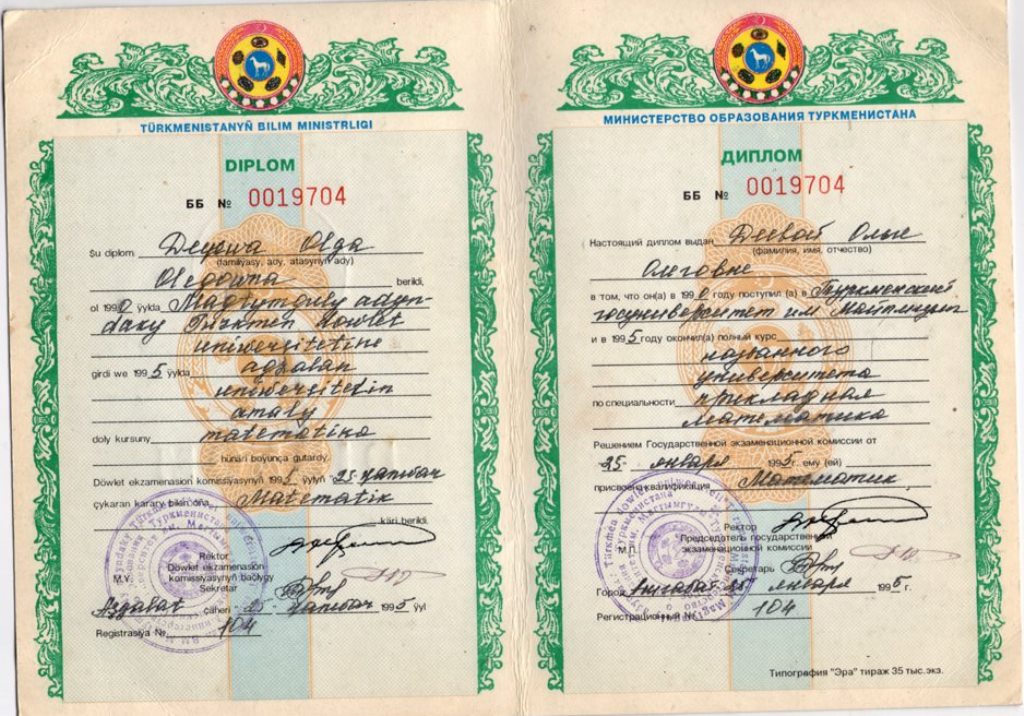 TÜRKMENISTANYŇ BILIM MINISTRLIGI
DIPLOM
ББ № 0019704
Şu diplom Deyewa Olga
(familiýasy, ady, atasynyň ady)
Olegowna berildi,
ol 1990 ýylda Magtymguly adyn-
daky Türkmen döwlet
uniwersitetine
girdi we 1995 ýylda agzalan
uniwersitetin
amaly
doly kursuny matematika
hünäri boýunça gutardy.
Döwlet ekzamenasion komissiýasynyň 1995 ýylyň "25" ýanwar
çykaran karary bilen oňa Matematik
käri berildi.
Rektor
M.Ý. Döwlet ekzamenasion
komissiýasynyň başlygy
Sekretar
Aşgabat şäheri "25" ýanwar 1995 ýyl
Registrasiýa № 104
МИНИСТЕРСТВО ОБРАЗОВАНИЯ ТУРКМЕНИСТАНА
ДИПЛОМ
ББ № 0019704
Настоящий диплом выдан Деевой Ольге
(фамилия, имя, отчество)
Олеговне
в том, что он(а) в 1990 году поступил (а) в Туркменский
госуниверситет им Махтумкули
и в 1995 году окончил(а) полный курс
названного
университета
по специальности прикладная
математика
Решением Государственной экзаменационной комиссии от
"25" января 1995 г. ему (ей)
присвоена квалификация Математик
Ректор
Председатель государственной
М.П. экзаменационной комиссии
Секретарь
Город Ашгабат 25 января 1995 г.
Регистрационный № 104
Типография "Эра" тираж 35 тыс.экз.